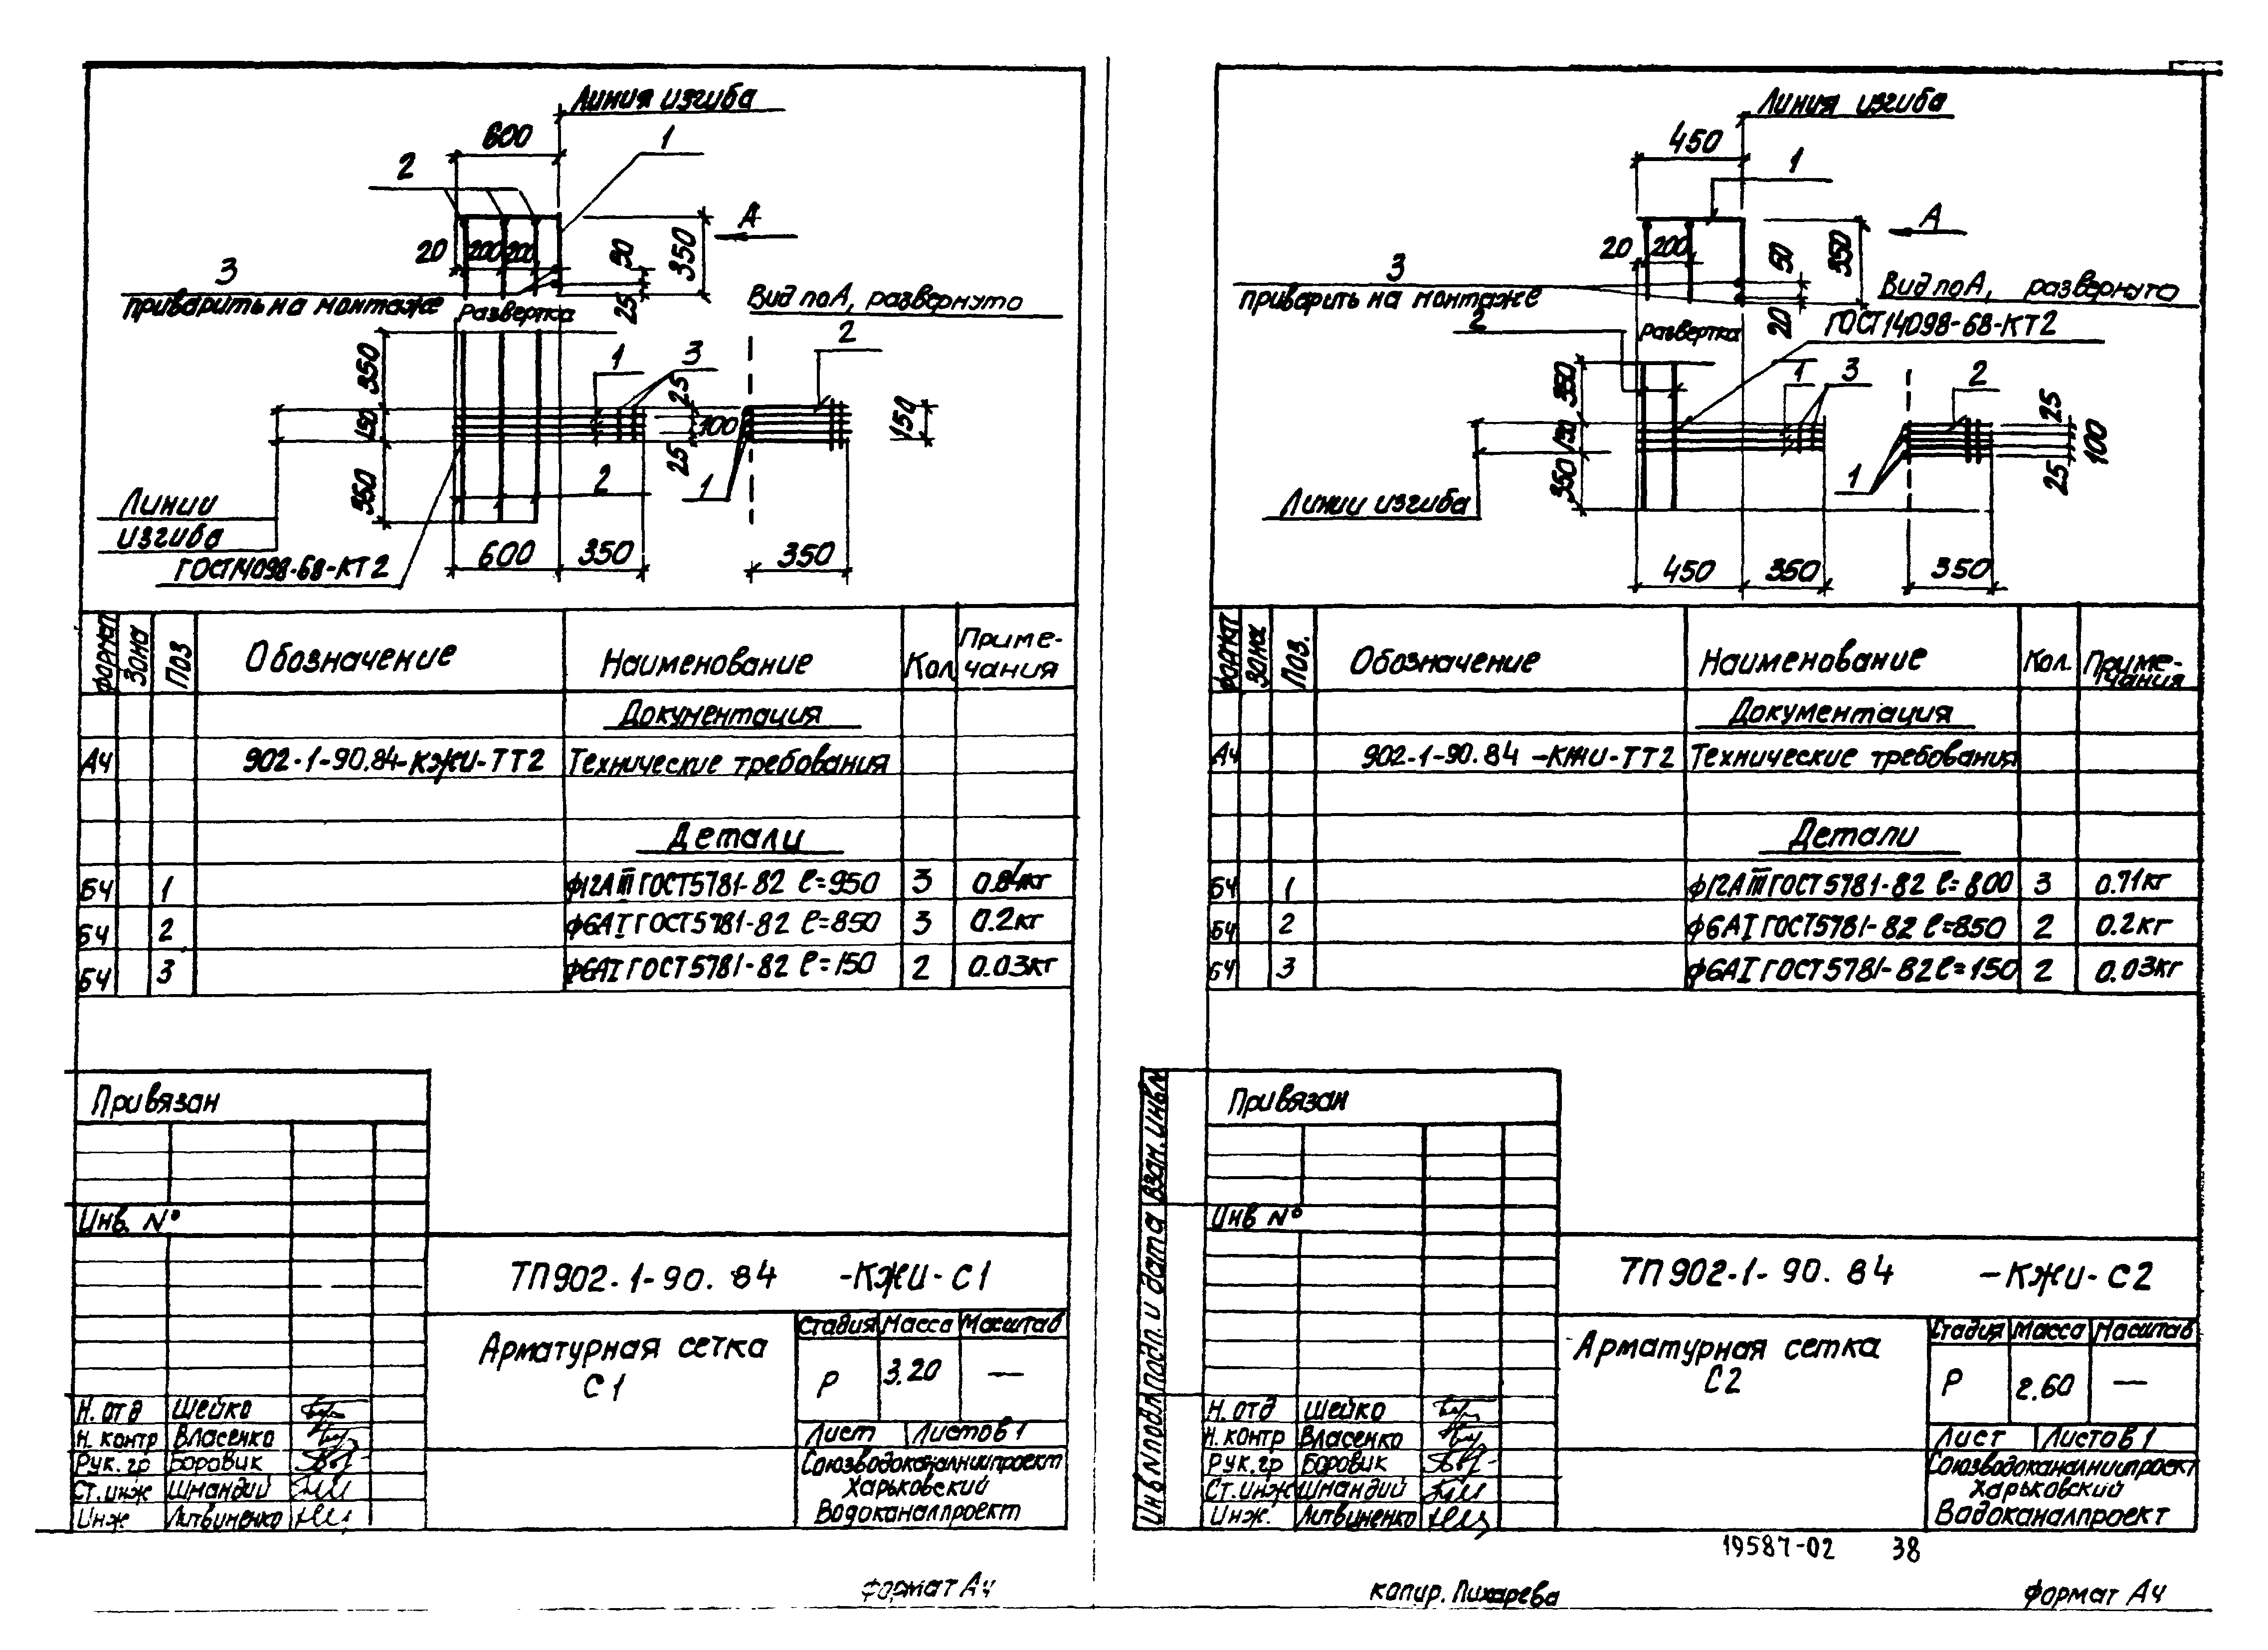 Линия изгиба
600
1
2
А
20 200 200
50
350
25
3
приварить на монтаже
Вид по А, развернуто
Развертка
2
1
3
350
25
150
100
150
25
350
2
1
Линии
изгиба
600
350
350
ГОСТ14098-68-КТ2
Формат Зона Поз Обозначение Наименование Кол Приме-
чания
Документация
А4 902-1-90.84-КЖИ-ТТ2 Технические требования
Детали
БЧ 1 ф12АIII ГОСТ5781-82 ℓ=950 3 0.84кг
БЧ 2 ф6АI ГОСТ5781-82 ℓ=850 3 0.2кг
БЧ 3 ф6АI ГОСТ5781-82 ℓ=150 2 0.03кг
Привязан
Инв. №
ТП902-1-90.84 -КЖИ-С1
Арматурная сетка
С1
Стадия Масса Масштаб
Р 3.20 —
Лист Листов 1
Союзводоканалниипроект
Харьковский
Водоканалпроект
Н. отд Шейко
Н. контр Власенко
Рук. гр Боровик
Ст. инж Шмандий
Инж Литвиненко
формат А4
Линия изгиба
450
1
А
20 200
50
350
20
3
приварить на монтаже
Вид по А, развернуто
2
Развертка
ГОСТ14098-68-КТ2
1
3
2
350
150
350
25
100
25
1
Линии изгиба
450
350
350
Формат Зона Поз. Обозначение Наименование Кол. Приме-
чания
Документация
А4 902-1-90.84-КЖИ-ТТ2 Технические требования
Детали
БЧ 1 ф12АIII ГОСТ5781-82 ℓ=800 3 0.71кг
БЧ 2 ф6АI ГОСТ5781-82 ℓ=850 2 0.2кг
БЧ 3 ф6АI ГОСТ5781-82 ℓ=150 2 0.03кг
Привязан
Инв №
Взам. инв №
Подп. и дата
Инв № подл
ТП902-1-90.84 -КЖИ-С2
Арматурная сетка
С2
Стадия Масса Масштаб
Р 2.60 —
Лист Листов 1
Союзводоканалниипроект
Харьковский
Водоканалпроект
Н. отд Шейко
Н. контр Власенко
Рук. гр Боровик
Ст. инж Шмандий
Инж. Литвиненко
19587-02 38
копир. Пихарева
формат А4